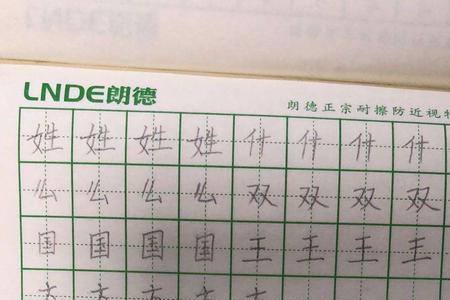 LNDE朗德
朗德正宗耐擦防近视
姓姓姓姓什什什什
么么么么双双双双
国国国国王王王王